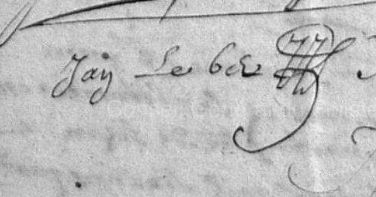 Jay Le ber